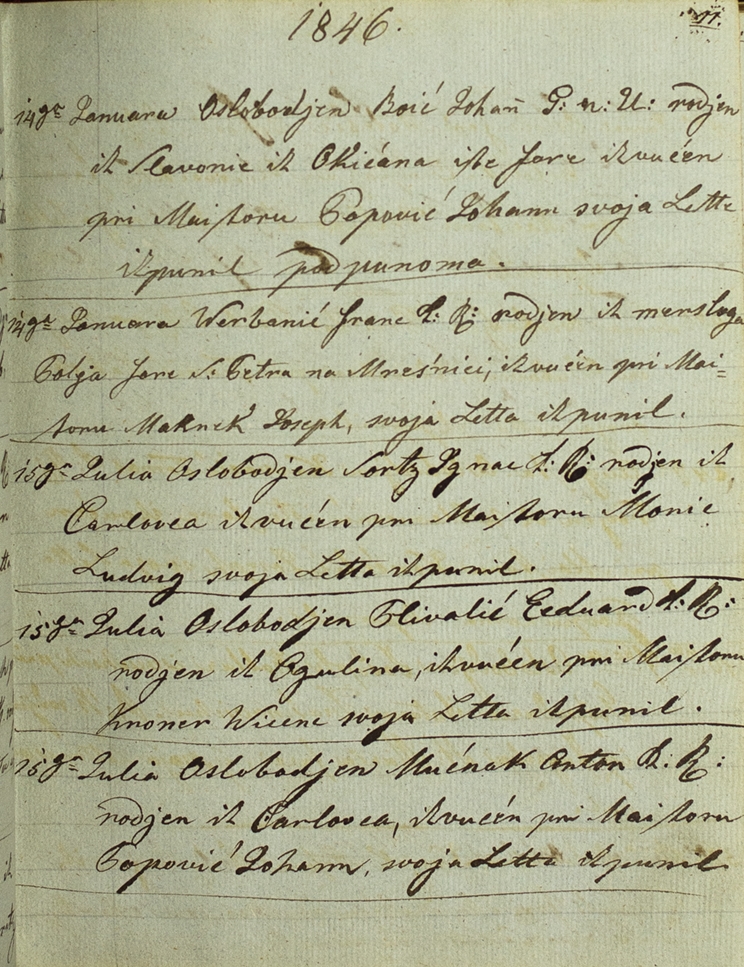 1846.
11.
14ga Januara Oslobodjen Boić Johañ G: n: U: rodjen
iz Slavonie iz Okićana iste fare izvućen
pri Maistoru Popović Johann svoja Letta
izpunil podpunoma.
14ga Januara Werbanić franc L: R: rodjen iz mersluga
Polja fare S: Petra na Mresnici, izvućen pri Mai=
storu Maknek Joseph, svoja Letta izpunil.
15ga Julia Oslobodjen Sortz Ignac L: R: rodjen iz
Carlovca izvućen pri Maistoru Monic
Ludvig svoja Letta izpunil.
15ga Julia Oslobodjen Plivalić Eeduard L: R:
rodjen iz Ogulina, izvućen pri Maistoru
Kroner Wicenc svoja Letta izpunil.
15ga Julia Oslobodjen Mućnak Anton L: R:
rodjen iz Carlovca, izvućen pri Maistoru
Popović Johann, svoja Letta izpunil